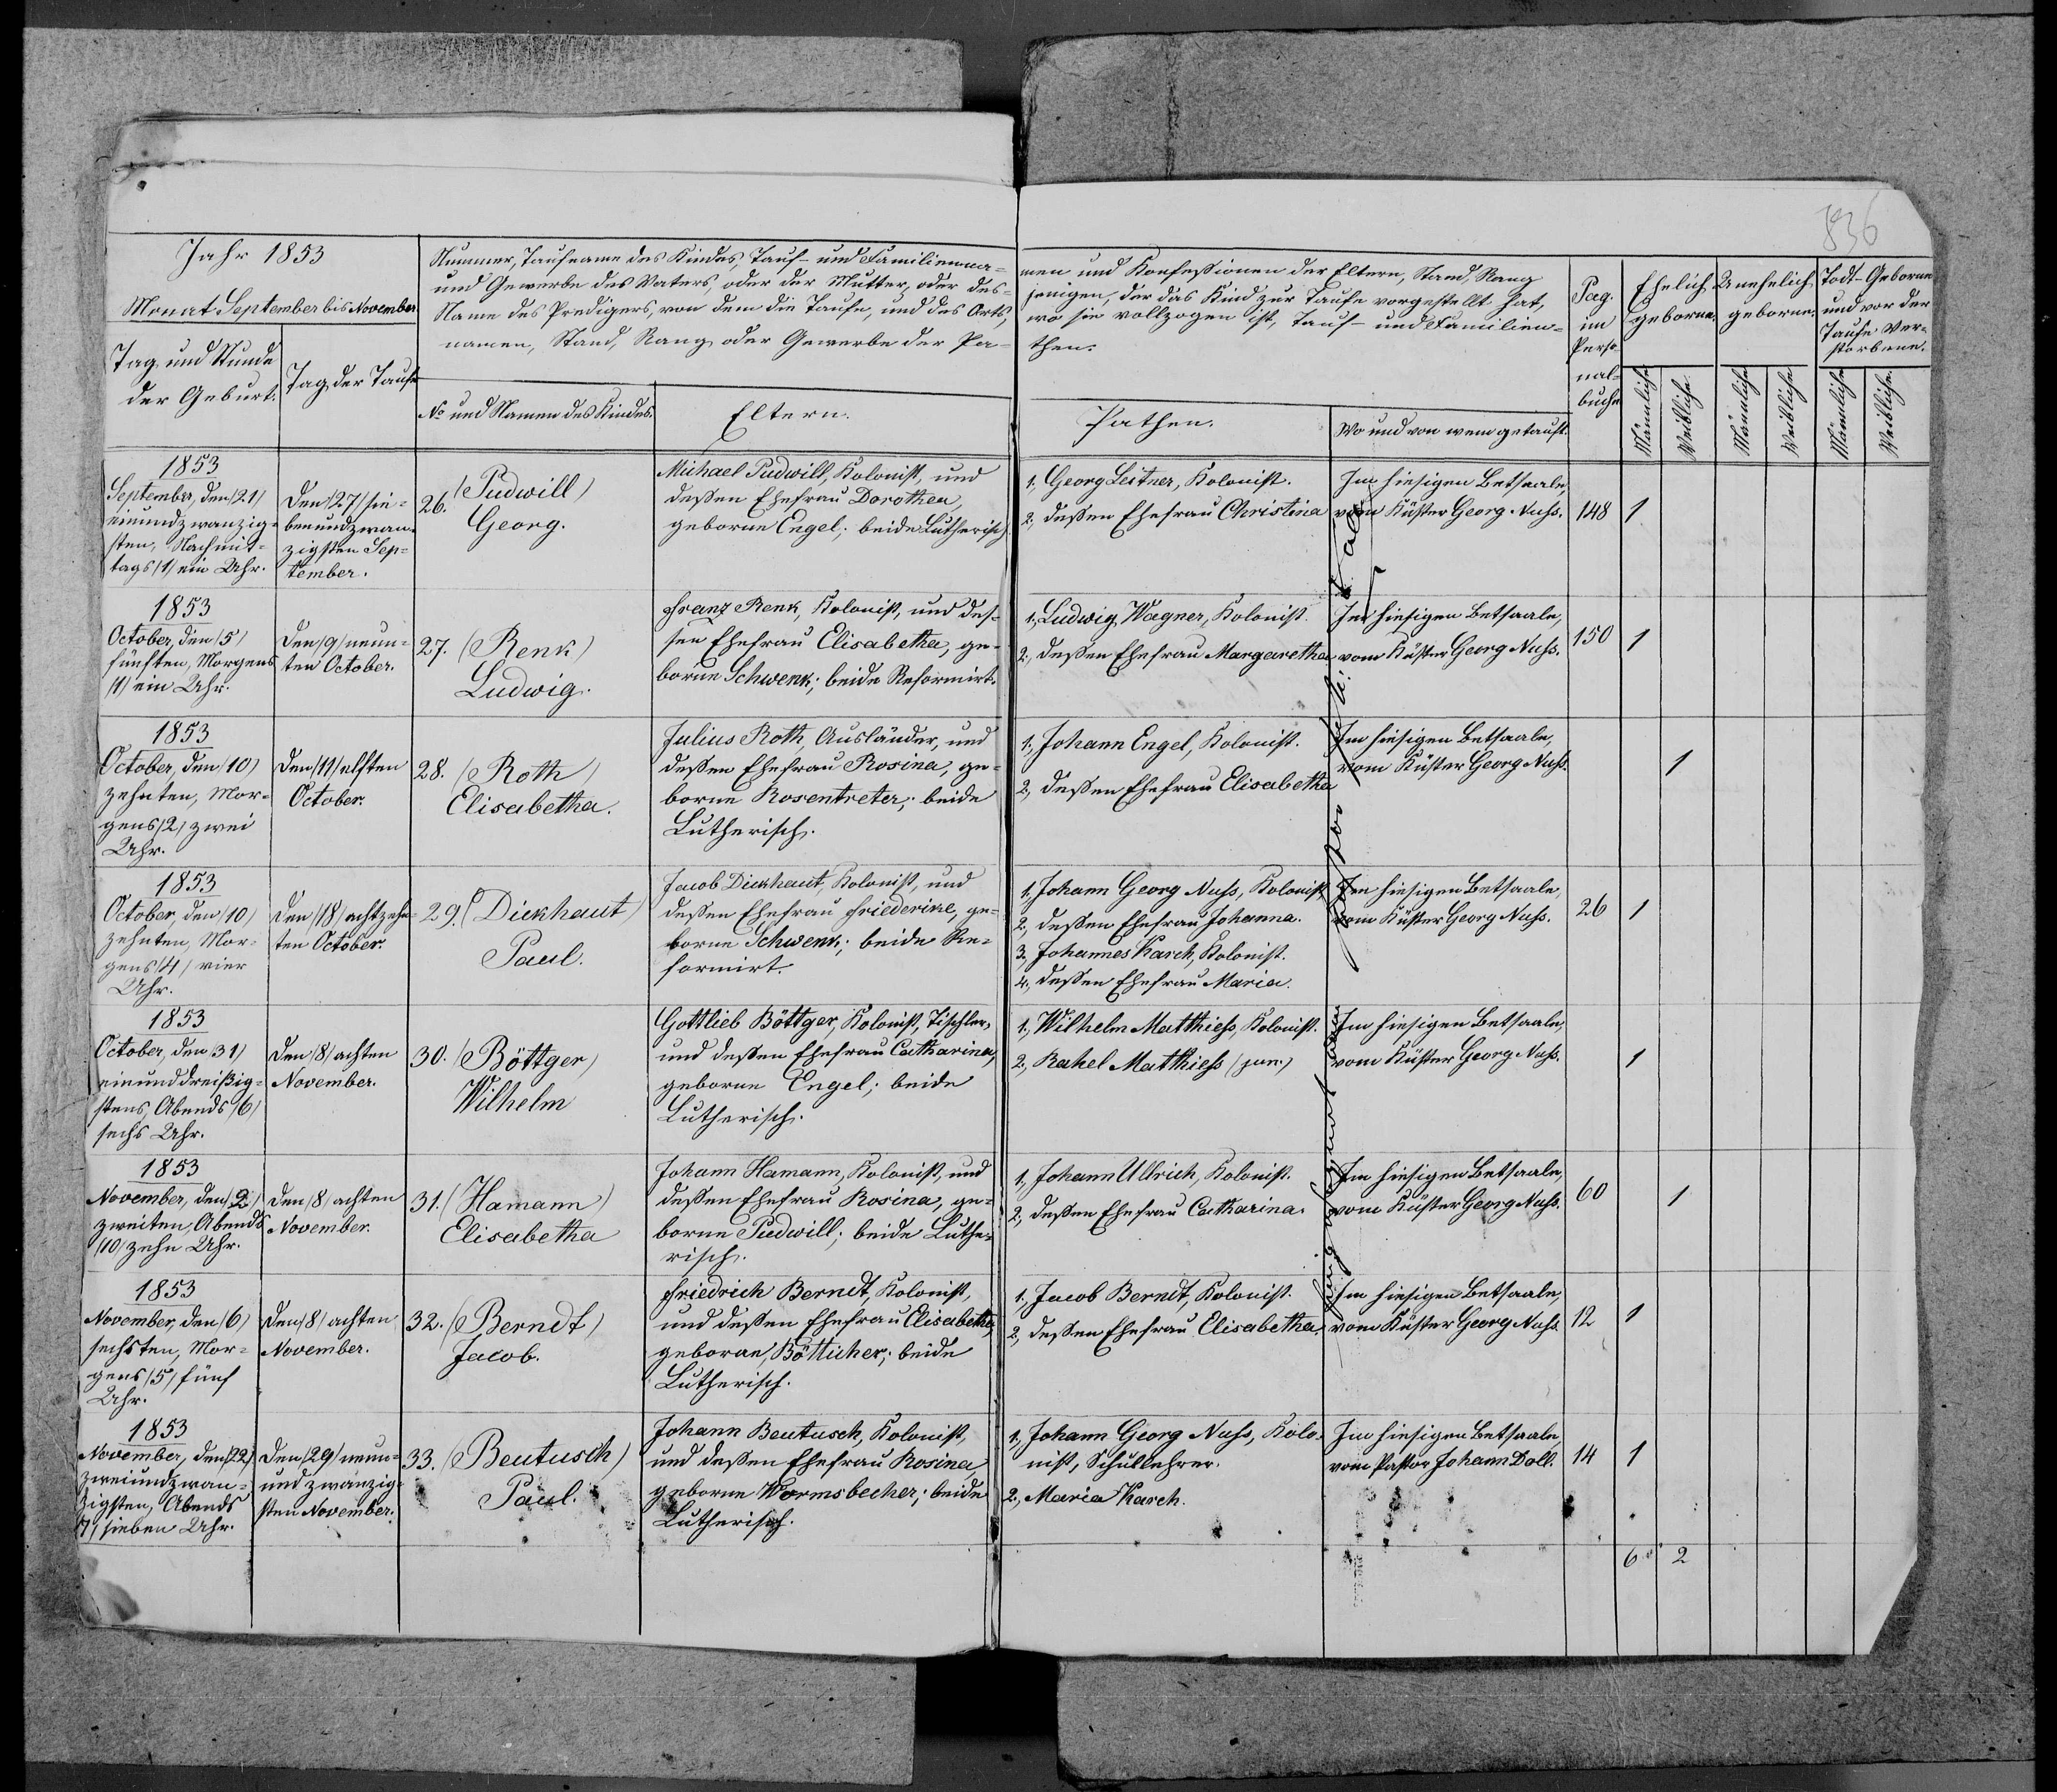 836
Jahr 1853
Monat September bis November
Tag und Stunde
der Geburt.
Tag der Taufe
Nummer, Taufname des Kindes, Tauf- und Familienna-
und Gewerbe des Vaters, oder der Mutter, oder des-
Name des Predigers, von dem die Taufe, und des Orts,
namen, Stand, Rang oder Gewerbe der Pa-
No und Namen des Kindes.
Eltern.
men und Konfessionen der Eltern, Stand, Rang
jenigen, der das Kind zur Taufe vorgestellt hat,
wo sie vollzogen ist, Tauf- und Familien-
then.
Pathen.
Wo und von wem getauft.
Pag.
im
Perso-
nal-
buche
Ehelich
geborne.
Unehelich
geborne.
Todt-Geborne
und vor der
Taufe Ver-
storbene.
Männliche
Weibliche
Männliche
Weibliche
Männliche
Weibliche
1853
September, den (21)
einundzwanzig-
sten, Nachmit-
tags (1) ein Uhr.
Den (27) sie-
benundzwan-
zigsten Sep-
tember.
26. (Pudwill)
Georg.
Michael Pudwill, Kolonist, und
dessen Ehefrau Dorothea,
geborne Engel; beide Lutherisch.
1, Georg Leitner, Kolonist.
2, dessen Ehefrau Christina
Im hiesigen Betsaale,
vom Küster Georg Nuss.
148
1
1853
October, den (5)
fünften, Morgens
(1) ein Uhr.
Den (9) neun-
ten October.
27. (Renk)
Ludwig.
Franz Renk, Kolonist, und des-
sen Ehefrau Elisabetha, ge-
borne Schwenk; beide Reformirt.
1, Ludwig Wagner, Kolonist.
2, dessen Ehefrau Margaretha
Im hiesigen Betsaale,
vom Küster Georg Nuss.
150
1
1853
October, den (10)
zehnten, Mor-
gens (2) zwei
Uhr.
Den (11) elften
October.
28. (Roth)
Elisabetha.
Julius Roth, Ausländer, und
dessen Ehefrau Rosina, ge-
borne Rosentreter; beide
Lutherisch.
1, Johann Engel, Kolonist.
2, dessen Ehefrau Elisabetha
Im hiesigen Betsaale,
vom Küster Georg Nuss.
1
1853
October, den (10)
zehnten, Mor-
gens (4) vier
Uhr.
Den (18) achtzehn-
ten October.
29. (Dickhaut)
Paul.
Jacob Dickhaut, Kolonist, und
dessen Ehefrau Friederike, ge-
borne Schwenk; beide Re-
formirt.
1, Johann Georg Nuss, Kolonist,
2, dessen Ehefrau Johanna.
3, Johannes Karch, Kolonist.
4, dessen Ehefrau Maria.
Im hiesigen Betsaale,
vom Küster Georg Nuss.
26
1
1853
October, den (31)
einunddreißig-
stens, Abends (6)
sechs Uhr.
Den (8) achten
November.
30. (Böttger)
Wilhelm
Gottlieb Böttger, Kolonist, Tischler,
und dessen Ehefrau Catharina,
geborne Engel; beide
Lutherisch.
1, Wilhelm Matthiess, Kolonist.
2, Rahel Matthiess (jun.)
Im hiesigen Betsaale,
vom Küster Georg Nuss.
1
1853
November, den (2)
zweiten, Abends
(10) zehn Uhr.
Den (8) achten
November.
31. (Hamann)
Elisabetha
Johann Hamann, Kolonist, und
dessen Ehefrau Rosina, ge-
borne Pudwill; beide Luthe-
risch.
1, Johann Ullrich, Kolonist.
2, dessen Ehefrau Catharina.
Im hiesigen Betsaale,
vom Küster Georg Nuss.
60
1
1853
November, den (6)
sechsten, Mor-
gens (5) fünf
Uhr.
Den (8) achten
November.
32. (Berndt)
Jacob.
Friedrich Berndt, Kolonist,
und dessen Ehefrau Elisabetha,
geborne, Bötticher; beide
Lutherisch.
1, Jacob Berndt, Kolonist.
2, dessen Ehefrau Elisabetha.
Im hiesigen Betsaale,
vom Küster Georg Nuss
12
1
1853
November, den (22)
zweiundzwan-
zigsten, Abends
(7) sieben Uhr.
Den (29) neun-
undzwanzig-
sten November.
33. (Beutusch)
Paul.
Johann Beutusch, Kolonist,
und dessen Ehefrau Rosina,
geborne Wormsbecher; beide
Lutherisch.
1, Johann Georg Nuss, Kolo-
nist, Schullehrer.
2, Maria Karch.
Im hiesigen Betsaale,
vom Pastor Johann Doll.
14
1
6 2